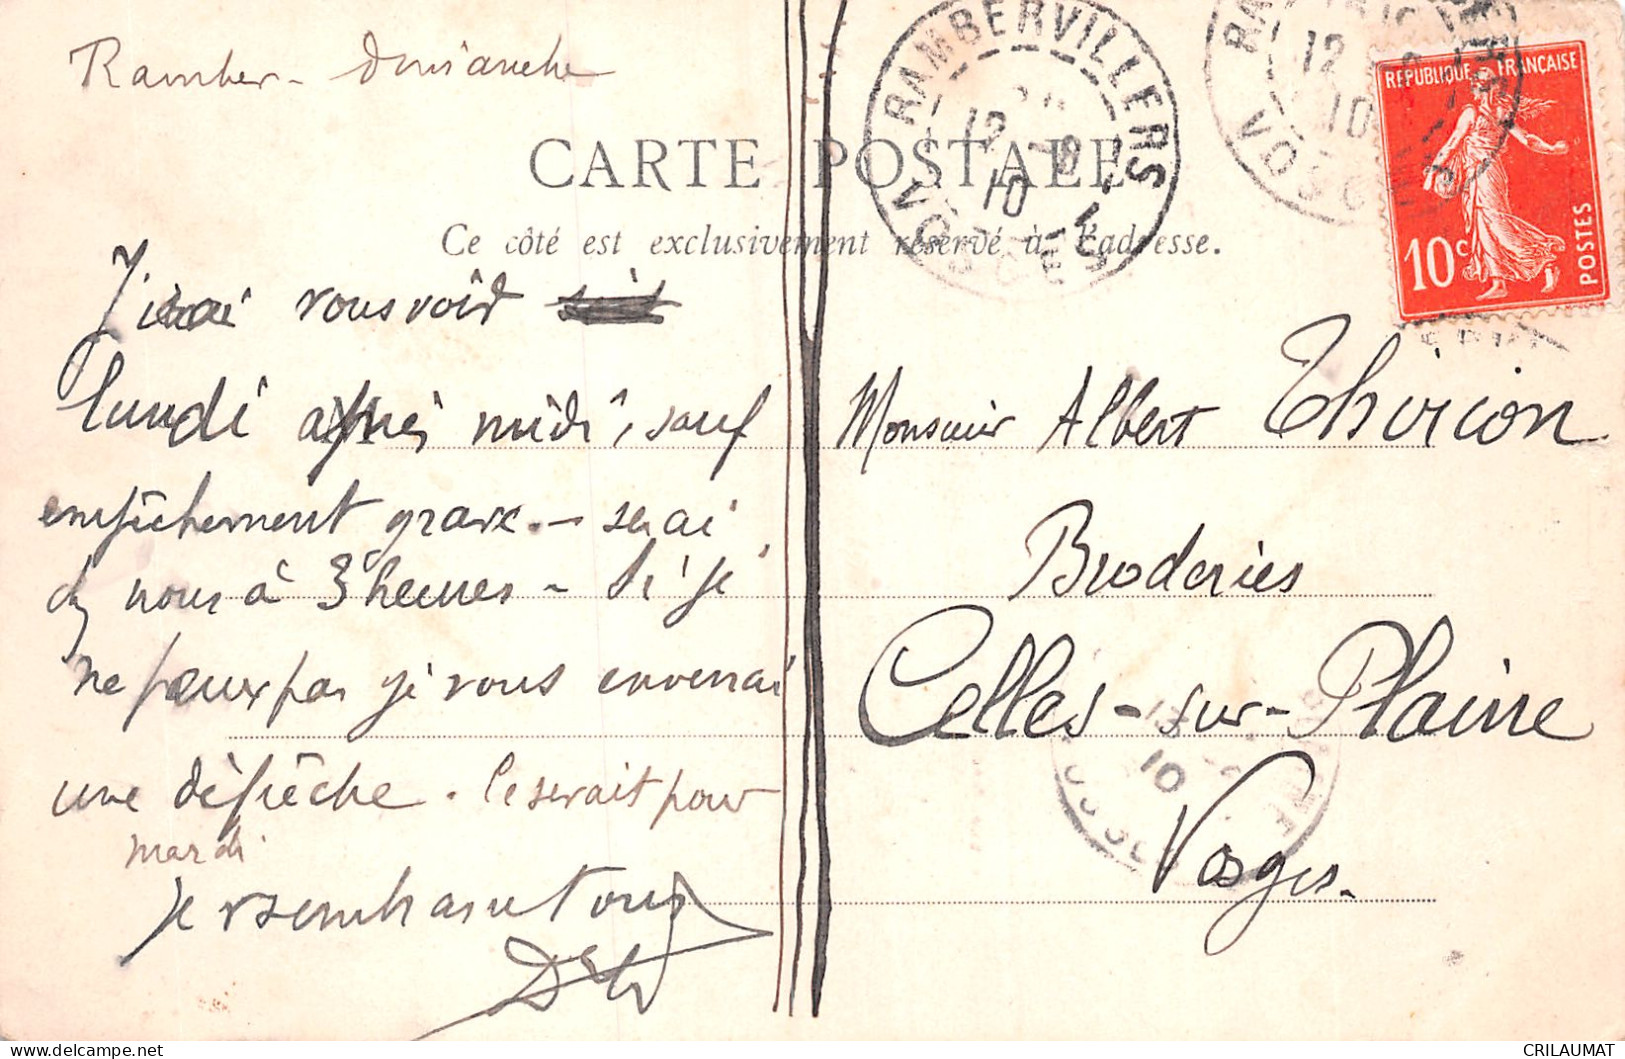 Ramber - Dimanche
CARTE POSTALE
Ce côté est exclusivement réservé à l'adresse.
RAMBERVILLERS
VOSGES
12
10
12
10
VOSGES
REPUBLIQUE FRANÇAISE
10c
POSTES
J'irai vous voir
lundi après midi, sauf
empêchement grave. - serai
chez vous à 3 heures - Si je
ne peux pas je vous enverrai
une dépêche. Ce serait pour
mardi
Je vs embrasse tous
Monsieur Albert Thirion
Broderies
Celles-sur-Plaine
Vosges.
10
CRILAUMAT